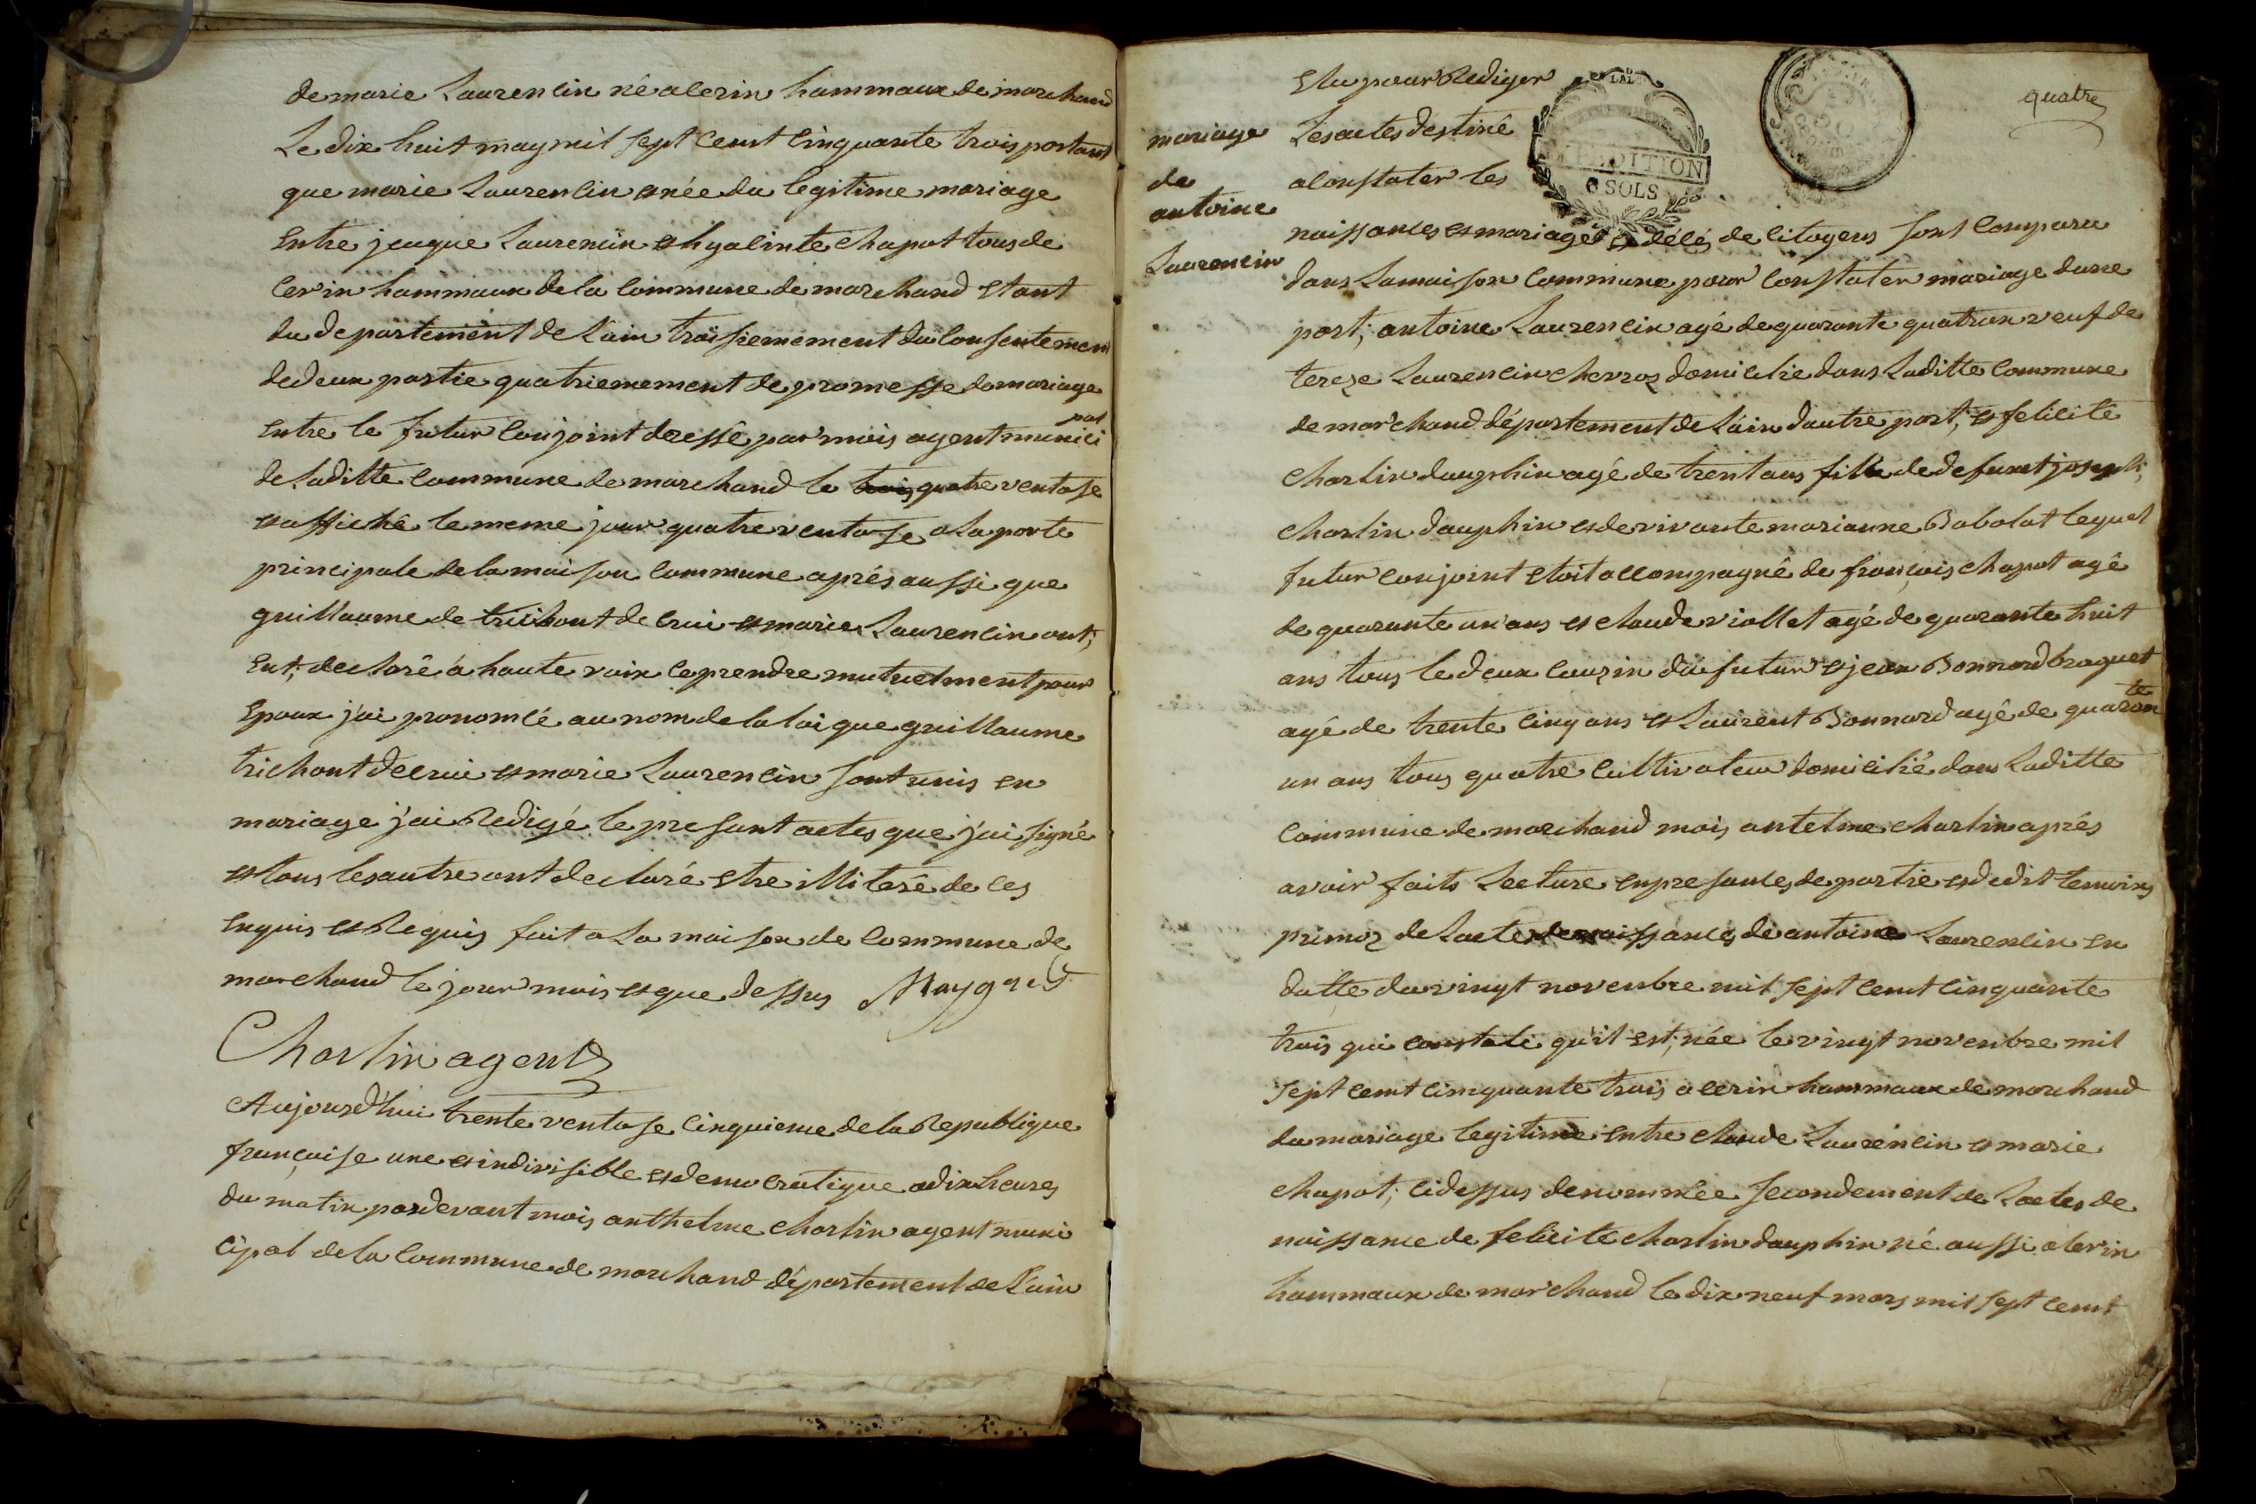 de marie Laurencin né a cerin hammaux de marchand
Le dix huit may mil sept cemt cinquante trois portant
que marie Laurencin et née du legitime mariage
entre jeaque Laurencin et hyacinte chapot tous de
cerin hammaux de la commune de marchand etant
du departement de Lain troisiemement du consentement
de deux partie quatriemement de promesse de mariage
entre le futur conjoint deressé par mois agent munici
pal
de Laditte commune de marchand le trois quatre ventose
et affiché le meme jour quatre ventose a La porte
principale de la maison commune aprés aussi que
guillaume de trichont de crui et marie Laurencin ont;
ent; declaré à haute voix ce prendre mutuelment pour
Epoux j'ai pronomcé au nom de la loi que guillaume
trichont decrui et marie Laurencin sont unis en
mariage j'ai Redigé le presant actes que j'ai signé
et tous les autre ont declaré etre illiteré de ces
enquis et Requis fait a La maison de commune de
marchand le jour mois et que dessus
Charlin agent
Aujourd'hui trente ventose cinquieme de la Republique
françaisse une et indivisible et democratique a dix heures
du matin pardevant mois anthelme charlin agent muni
cipal de la commune de marchand département de L'ain
quatre
Elu pour Rediger
Les actes destiné
a constater les
mariage
de
antoine
Laurencin
EXPEDITION
6 SOLS
naissances et mariage et décés de citoyens sont comparu
dans La maison commune pour constater mariage dune
part; antoine Laurencin agé de quarante quatr an veuf de
tereze Laurencin cherroz domicilié dans Laditte commune
de marchand département de Lain dautre part; et felicité
charlin dauphin agé de trent ans fille de defunt joseph;
charlin dauphin et de vivante marianne Babolat lequel
futur conjoint etoit accompagné de françois chapot agé
de quarante un ans et claude viollet agé de quarante huit
ans tous le deux couzin du futur et jean Bonnard braquet
agé de trente cinq ans et Laurent Bonnard agé de quaran
te
un ans tous quatre cultivateur domicilié dans Laditte
commune de marchand mois antelme charlin aprés
avoir faits Lecture en presances de partie et dedit temoins
primoz de Lacte de naissances de antoine Laurencin en
datte du vingt novenbre mil sept cemt cinquante
trois qui constate qu'il est; née le vingt novenbre mil
sept cemt cimquante trois a cerin hammaux de marchand
du mariage legitime entre claude Laurencin et marie
chapot; cidessus denommée secondement de Lactes de
naissance de felicité charlin dauphin né aussi a cerin
hammaux de marchand le dix neuf mars mil sept cemt